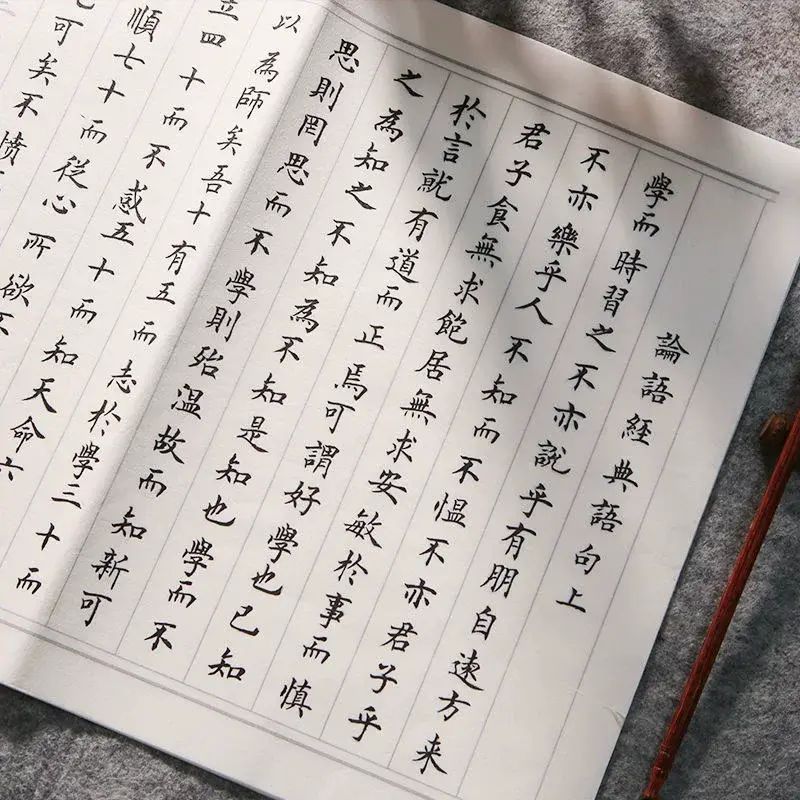 論語經典語句上
學而時習之不亦説乎有朋自遠方来
不亦樂乎人不知而不慍不亦君子乎
君子食無求飽居無求安敏於事而慎
於言就有道而正焉可謂好學也已知
之為知之不知為不知是知也學而不
思則罔思而不學則殆温故而知新可
以為師矣吾十有五而志於學三十而
立四十而不惑五十而知天命六
順七十而從心所欲不
可矣不憤